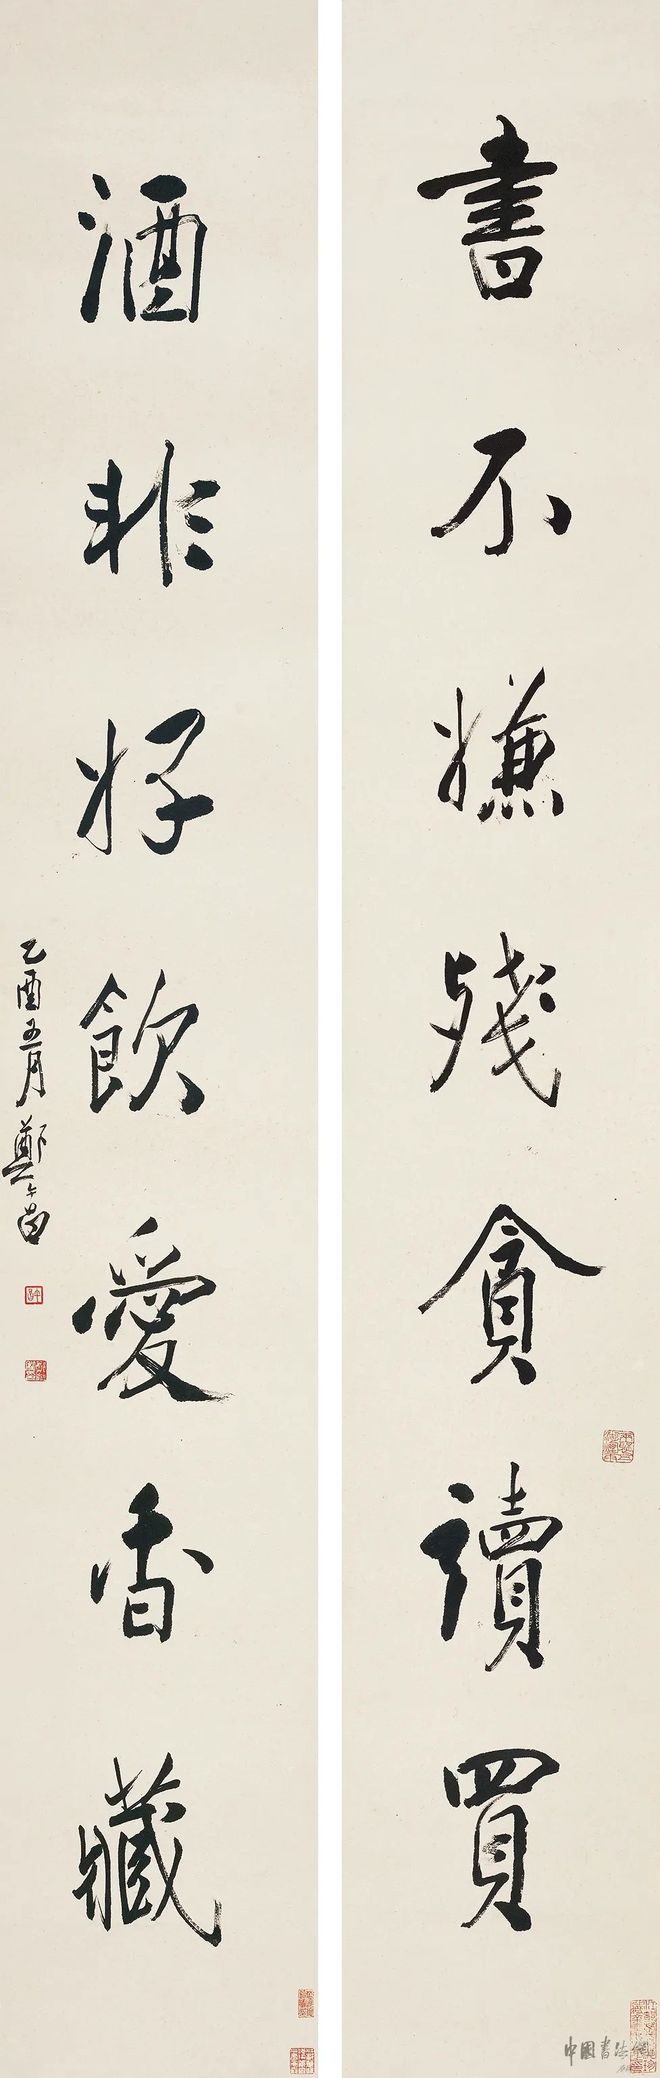 書不嫌殘貪讀買
酒非好飲愛香藏
乙酉五月鄭午昌
中國書法網